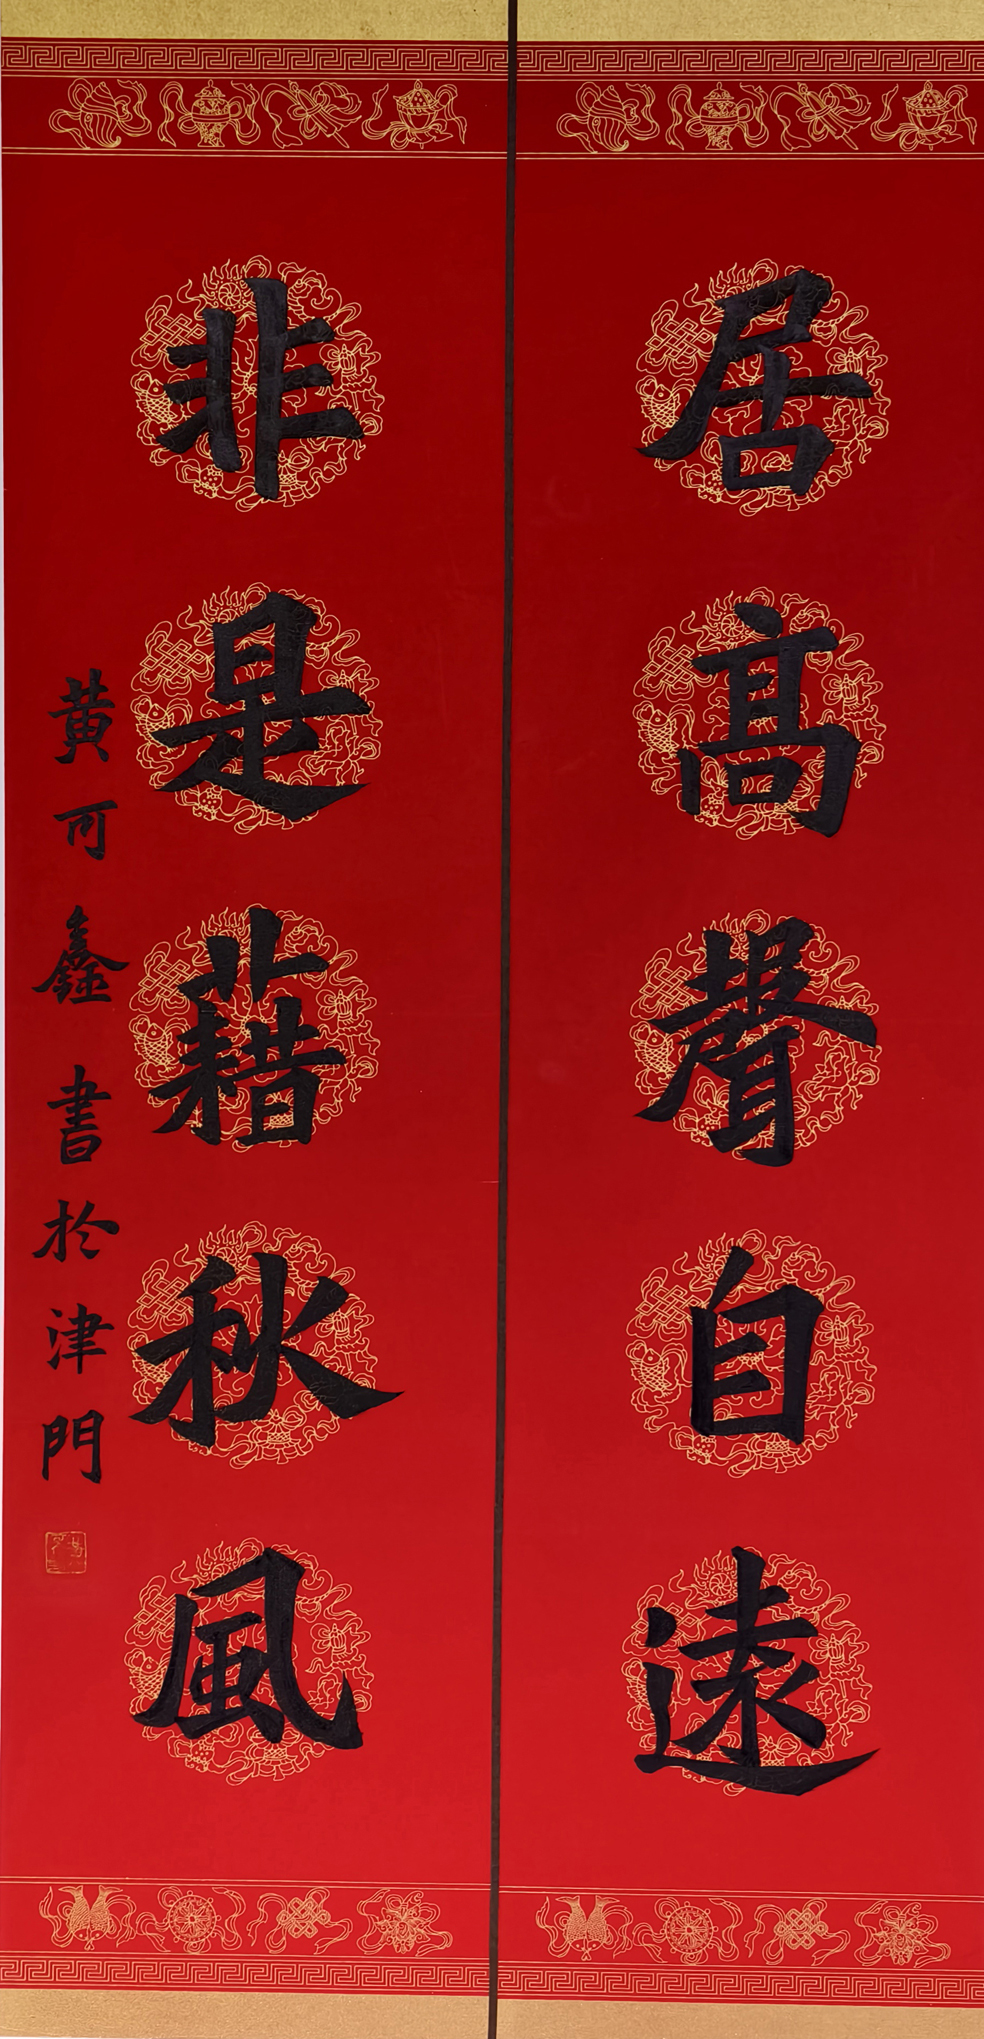 居高聲自遠
非是藉秋風
黄可鑫書於津門